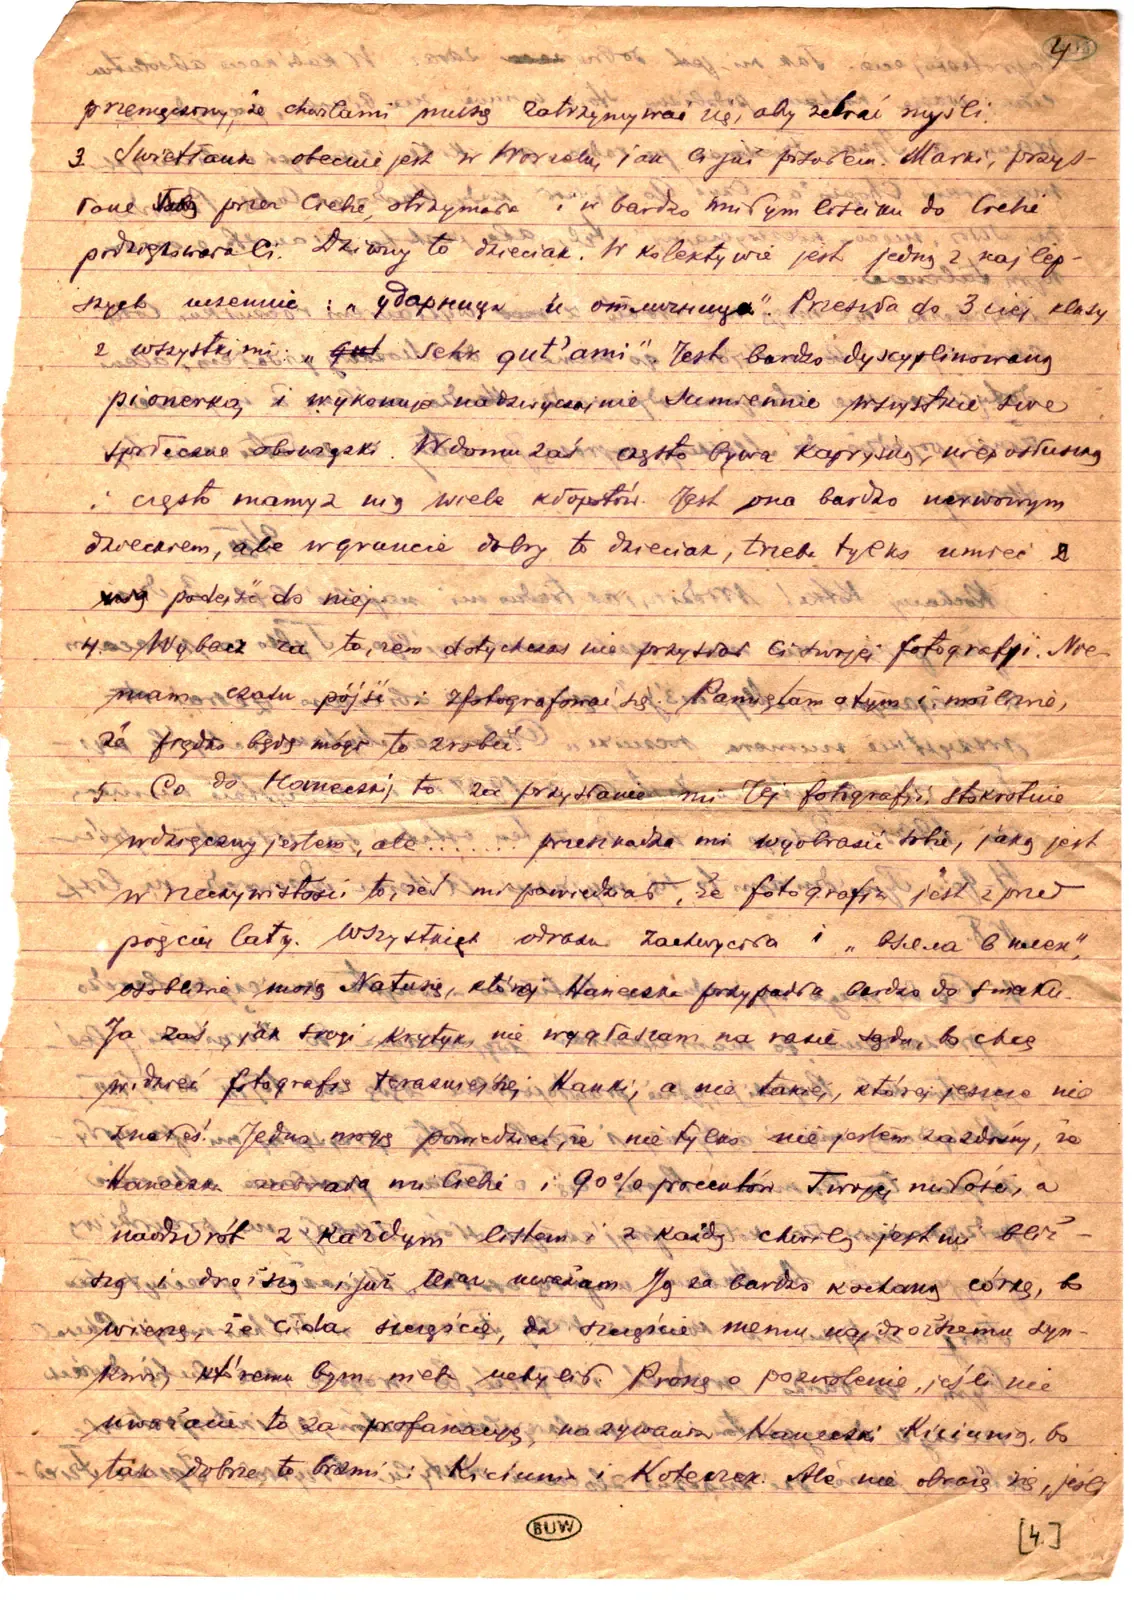 4
przemęczony, że chwilami muszę zatrzymywać się, aby zebrać myśli.
3. Swietłana obecnie jest w Worzelu, jak Ci już pisałem. Marki, przys-
łane przez Ciebie, otrzymała i w bardzo miłym liściku do Ciebie
podziękowała Ci. Dziwny to dzieciak. W kolektywie jest jedną z najlep-
szych uczennic: „ударница и отличница". Przeszła do 3ciej klasy
z wszystkimi: „gut sehr gut'ami". Jest bardzo dyscyplinowaną
pionerką, i wykonuje nadzwyczajnie sumiennie wszystkie swe
społeczne obowiązki. W domu zaś często bywa kapryśną, nieposłuszną
i często mamy z nią wiele kłopotów. Jest ona bardzo nerwowym
dzieckiem, ale w gruncie dobry to dzieciak, trzeba tylko umieć
podejść do niej.
4. Wybacz za to, żem dotychczas nie przysłał Ci swojej fotografji. Nie
mam czasu pójść i zfotografować się. Pamiętam o tym i możliwie,
że prędko będę mógł to zrobić.
5. Co do Haneczki, to za przysłanie mi Jej fotografji, stokrotnie
wdzięczny jestem, ale . . . . . . przeszkadza mi wyobrazić sobie, jaką jest
w rzeczywistości to, żeś mi powiedział, że fotografja jest z przed
pięciu laty. Wszystkich odrazu zachwyciła i „взяла в плен",
osobliwie moją Natusię, której Haneczka przypadła bardzo do smaku.
Ja zaś, jak srogi krytyk, nie wygłaszam na razie sądu, bo chcę
widzieć fotografię teraźniejszej Hanki, a nie takiej, której jeszcze nie
znałeś. Jedno mogę powiedzieć, że nie tylko nie jestem zazdrosny, że
Haneczka zabrała mi Ciebie i 90% procentów Twojej miłości, a
naodwrót z każdym listem i z każdą chwilą jest mi bliż-
szą i droższą i już teraz uważam Ją za bardzo kochaną córkę, bo
wierzę, że Ci da szczęście, da szczęście memu najdroższemu syn-
kowi, któremu bym nieba uchylił. Proszę o pozwolenie, jeśli nie
uważacie to za profanację, nazywania Haneczki Kiciunią, bo
tak dobrze to brzmi: Kiciunia i Koteczek. Ale nie obrażę się, jeśli
BUW
[4.]